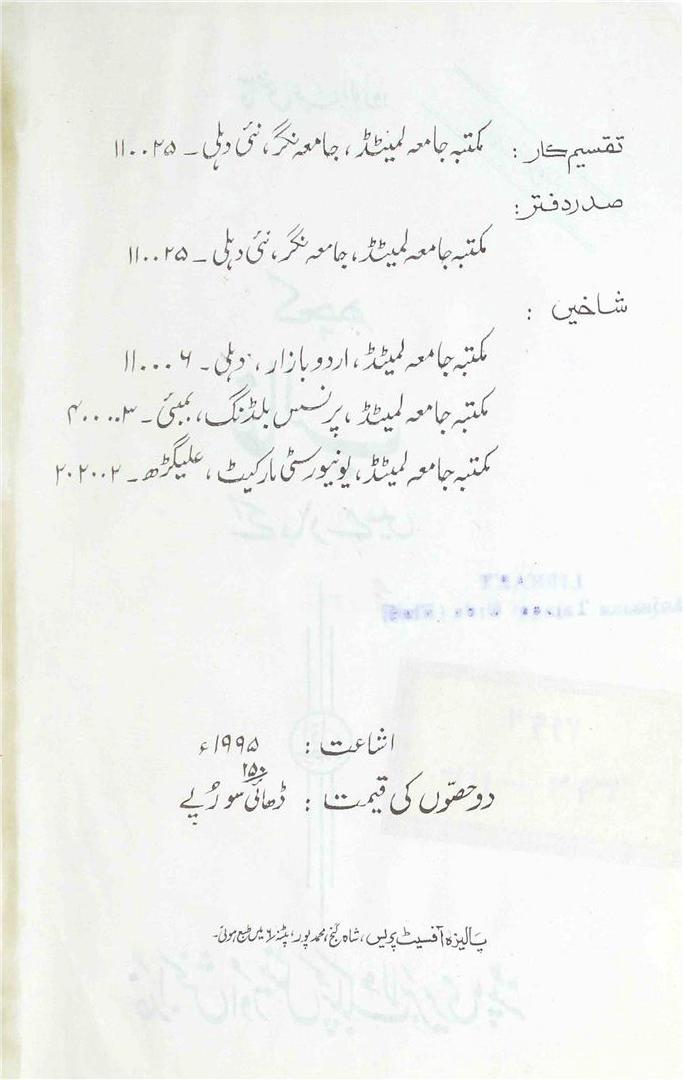 تقسیم کار : مکتبہ جامعہ لمیٹڈ، جامعہ نگر، نئی دہلی ۔ ۱۱۰۰۲۵
صدر دفتر :
مکتبہ جامعہ لمیٹڈ، جامعہ نگر، نئی دہلی ۔ ۱۱۰۰۲۵
شاخیں :
مکتبہ جامعہ لمیٹڈ، اردو بازار، دہلی ۔ ۱۱۰۰۰۶
مکتبہ جامعہ لمیٹڈ، پرنسس بلڈنگ، بمبئی ۔ ۴۰۰۰۰۳
مکتبہ جامعہ لمیٹڈ، یونیورسٹی مارکیٹ، علیگڑھ ۔ ۲۰۲۰۰۲
اشاعت : ۱۹۹۵ء
۲۵۰
دو حصّوں کی قیمت : ڈھائی سو رُپے
پالیزہ آفسیٹ پریس، شاہ گنج، محمد پور، پٹنہ ۶ میں طبع ہوئی۔